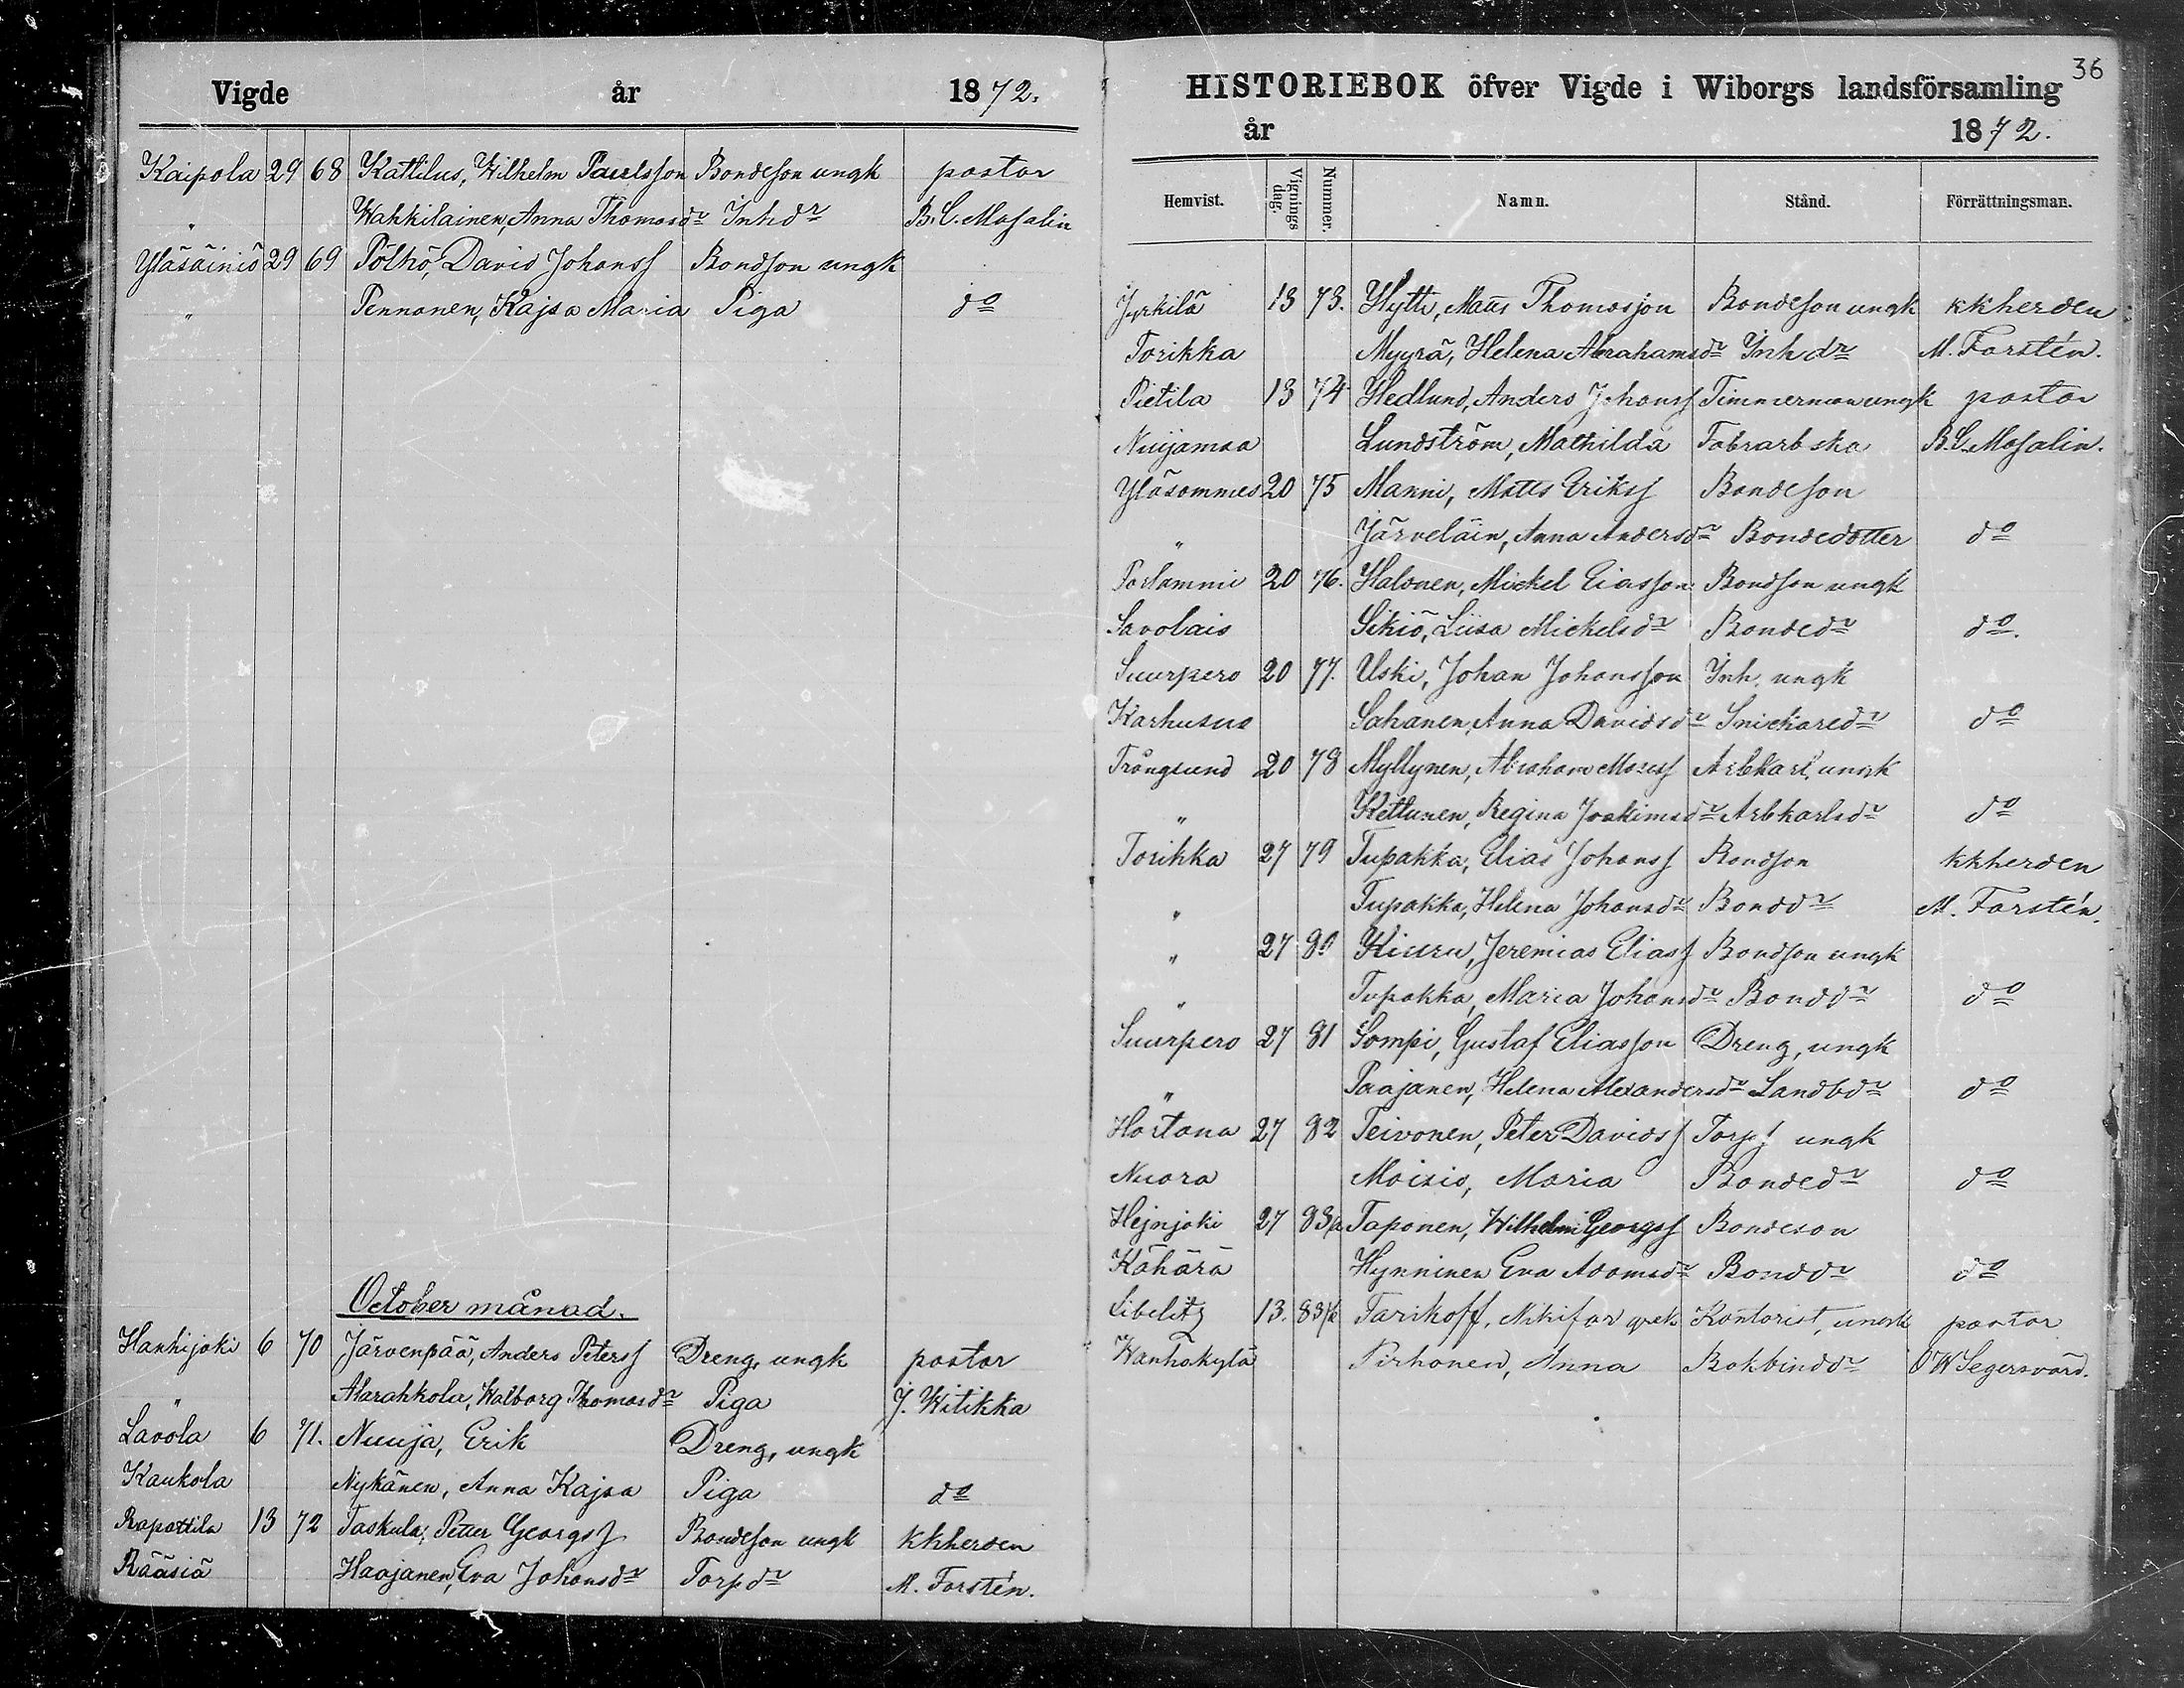 Vigde år 1872.
Kaipola 29 68 Kattilus, Wilhelm Paulsson Bondeson ungk pastor
" Wahkilainen, Anna Thomasdr Inhdr B. C. Mosalin
Yläsäiniö 29 69 Pölhö, David Johanss Bondson ungk
" Pennanen, Kajsa Maria Piga do
October månad.
Hanhijoki 6 70 Järvenpää, Anders Peterss Dreng, ungk pastor
" Alarahkola, Walborg Thomasdr Piga J. Witikka
Lavola 6 71. Nuuja, Erik Dreng, ungk
Kaukola Nykänen, Anna Kajsa Piga do
Rapattila 13 72 Taskula, Petter Georgss Bondeson ungk kkherden
Rääsiä Haajanen, Eva Johansdr Torpdr M. Forstén.
36
HISTORIEBOK öfver Vigde i Wiborgs landsförsamling
år 1872.
Hemvist. Vignings dag. Nummer. Namn. Stånd. Förrättningsman.
Jyrkilä 13 73. Hytti, Matts Thomasson Bondeson ungk kkherden
Torikka Myyrä, Helena Abrahamsdr Inhdr M. Forstén.
Pietila 13 74 Hedlund, Anders Johanss Timmerman ungk pastor
Nuijamaa Lundström, Mathilda Fabrarbska B. C. Mosalin.
Yläsommes 20 75 Manni, Matts Erikss Bondeson
" Järveläin, Anna Andersdr Bondedotter do
Porlammi 20 76. Halonen, Mickel Eiasson Bondson ungk
Savolais Sikiö, Liisa Mickelsdr Bondedr do.
Suurpero 20 77. Uski, Johan Johansson Inh. ungk
Karhusuo Sahanen, Anna Davidsdr Snickaredr do
Trångsund 20 78 Myllynen, Abraham Mosess Arbkarl, ungk
" Kettunen, Regina Joakimsdr Arbkarlsdr do
Torikka 27 79 Tupakka, Elias Johanss Bondson kkherden
" Tupakka, Helena Johansdr Bonddr M. Forstén.
" 27 80 Kiuru, Jeremias Eliass Bondson ungk
" Tupakka, Maria Johansdr Bonddr do
Suurpero 27 81 Sompi, Gustaf Eliasson Dreng, ungk
" Paajanen, Helena Alexandersdr Landbdr do
Hortana 27 82 Teivonen, Peter Davidss Torps ungk
Nuora Moisio, Maria Bondedr do
Hejnjoki 27 83/a Taponen, Wilhelm Georgss Bondeson
Kähärä Hynninen Eva Adamsdr Bonddr do
Libelitz 13. 83/b Tarikoff, Nikifor grek Kontorist, ungk pastor
Wanhakylä Pirhonen, Anna Bokbinddr O W Segersvärd.